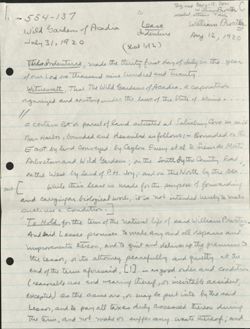 554-137
Wild Gardens of Acadia Lease
July 31, 1920 Indenture
Aug 16, 1920
This Indenture, made the thirty first day of July in the year
of our Lord one thousand nine hundred and twenty.
Witnesseth, That The Wild Gardens of Acadia, a corporation
organized and existing under the laws of the State of Maine -
a certain lot or parcel of land situated at Salisbury Cove in said
Bar Harbor, bounded and described as follows: Bounded on the
East by land conveyed by to
and Wild Gardens, on the South by the County Road,
on the West by land of and on the North by the Sea.
While this lease is made for the purpose of forwarding
and carrying on biological work, it is not intended hereby to make
such use a condition
To Hold for the term of the natural life of said William
And said Lessee promises to make any and all repairs and
improvements thereon, and to quit and deliver up the premises to
the Lessor, or its attorney peaceably and quietly at the
end of the term aforesaid, in as good order and condition
(reasonable use and wearing thereof, or inevitable accident,
excepted) as the same are, or may be put into by the said
Lessor, and to pay all taxes duly assessed thereon during
the term, and not make or suffer any waste thereof, and